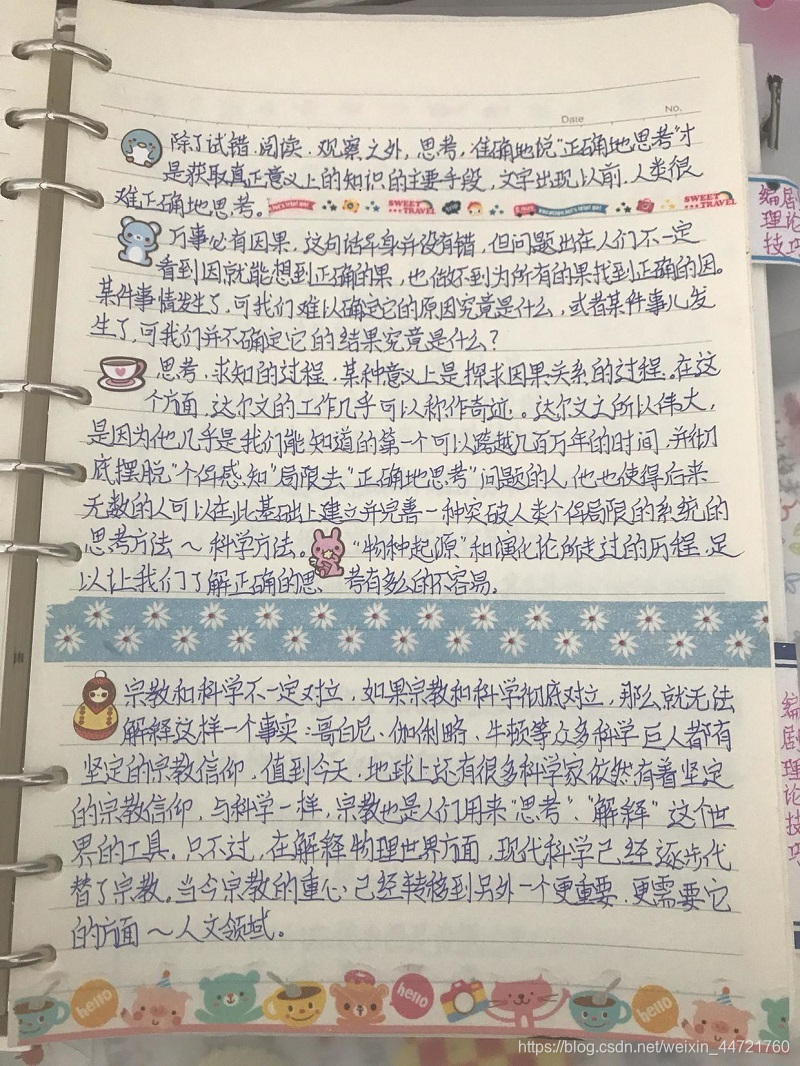 No.
Date
除了试错、阅读、观察之外，思考，准确地说"正确地思考"才
是获取真正意义上的知识的主要手段，文字出现以前，人类很
难正确地思考。
SWEET TRAVEL
SWEET TRAVEL
万事必有因果，这句话本身并没有错，但问题出在人们不一定
看到因就能想到正确的果，也做不到为所有的果找到正确的因。
某件事情发生了，可我们难以确定它的原因究竟是什么，或者某件事儿发
生了，可我们并不确定它的结果究竟是什么？
思考、求知的过程，某种意义上是探求因果关系的过程。在这
个方面，达尔文的工作几乎可以称作奇迹。。达尔文之所以伟大，
是因为他几乎是我们能知道的第一个可以跨越几百万年的时间，并彻
底摆脱"个体感知"局限去"正确地思考"问题的人，他也使得后来
无数的人可以在此基础上建立并完善一种突破人类个体局限的系统的
思考方法～科学方法。"物种起源"和演化论所走过的历程，足
以让我们了解正确的思考有多么的不容易。
宗教和科学不一定对立，如果宗教和科学彻底对立，那么就无法
解释这样一个事实：哥白尼、伽利略、牛顿等众多科学巨人都有
坚定的宗教信仰，值到今天，地球上还有很多科学家依然有着坚定
的宗教信仰，与科学一样，宗教也是人们用来"思考"、"解释"这个世
界的工具。只不过，在解释物理世界方面，现代科学已经逐步代
替了宗教。当今宗教的重心已经转移到另外一个更重要、更需要它
的方面～人文领域。
hello
hello
hello
编剧
理论
技巧
编
剧
理
论
技
巧
https://blog.csdn.net/weixin_44721760